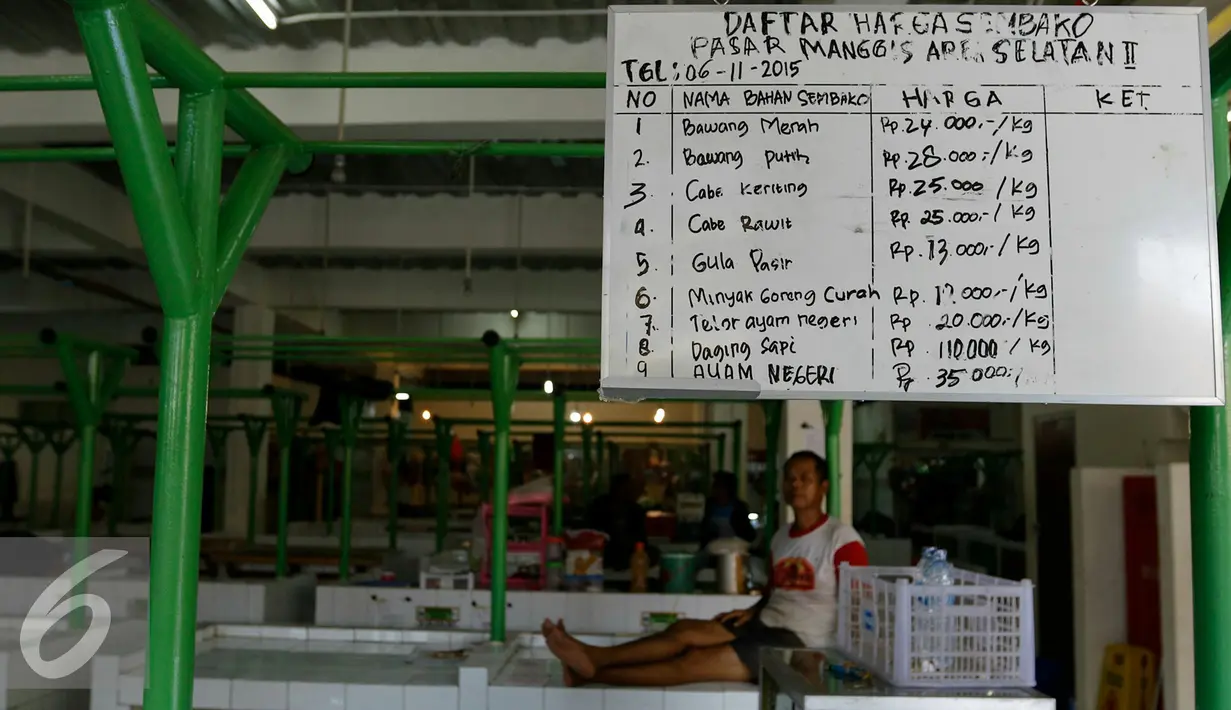 DAFTAR HARGA SEMBAKO
PASAR MANGGIS AREA SELATAN II
TGL : 06-11-2015
NO NAMA BAHAN SEMBAKO HARGA KET.
1 Bawang Merah Rp.24.000,-/kg
2. Bawang putih Rp.28.000,-/kg
3. Cabe Keriting Rp.25.000 /kg
4. Cabe Rawit Rp 25.000,-/kg
5. Gula Pasir Rp.13.000,-/kg
6. Minyak Goreng Curah Rp. 000,-/kg
7. Telor ayam negeri Rp 20.000,-/kg
8. Daging Sapi Rp. 110.000 /kg
9 AYAM NEGERI Rp 35 000,-/
6